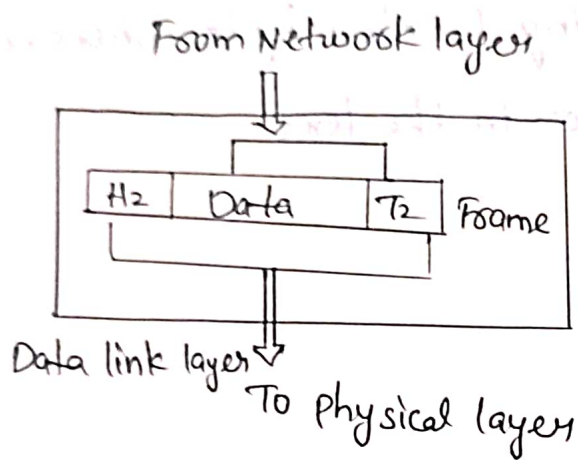 From Network layer
H2 Data T2 Frame
Data link layer
To physical layer